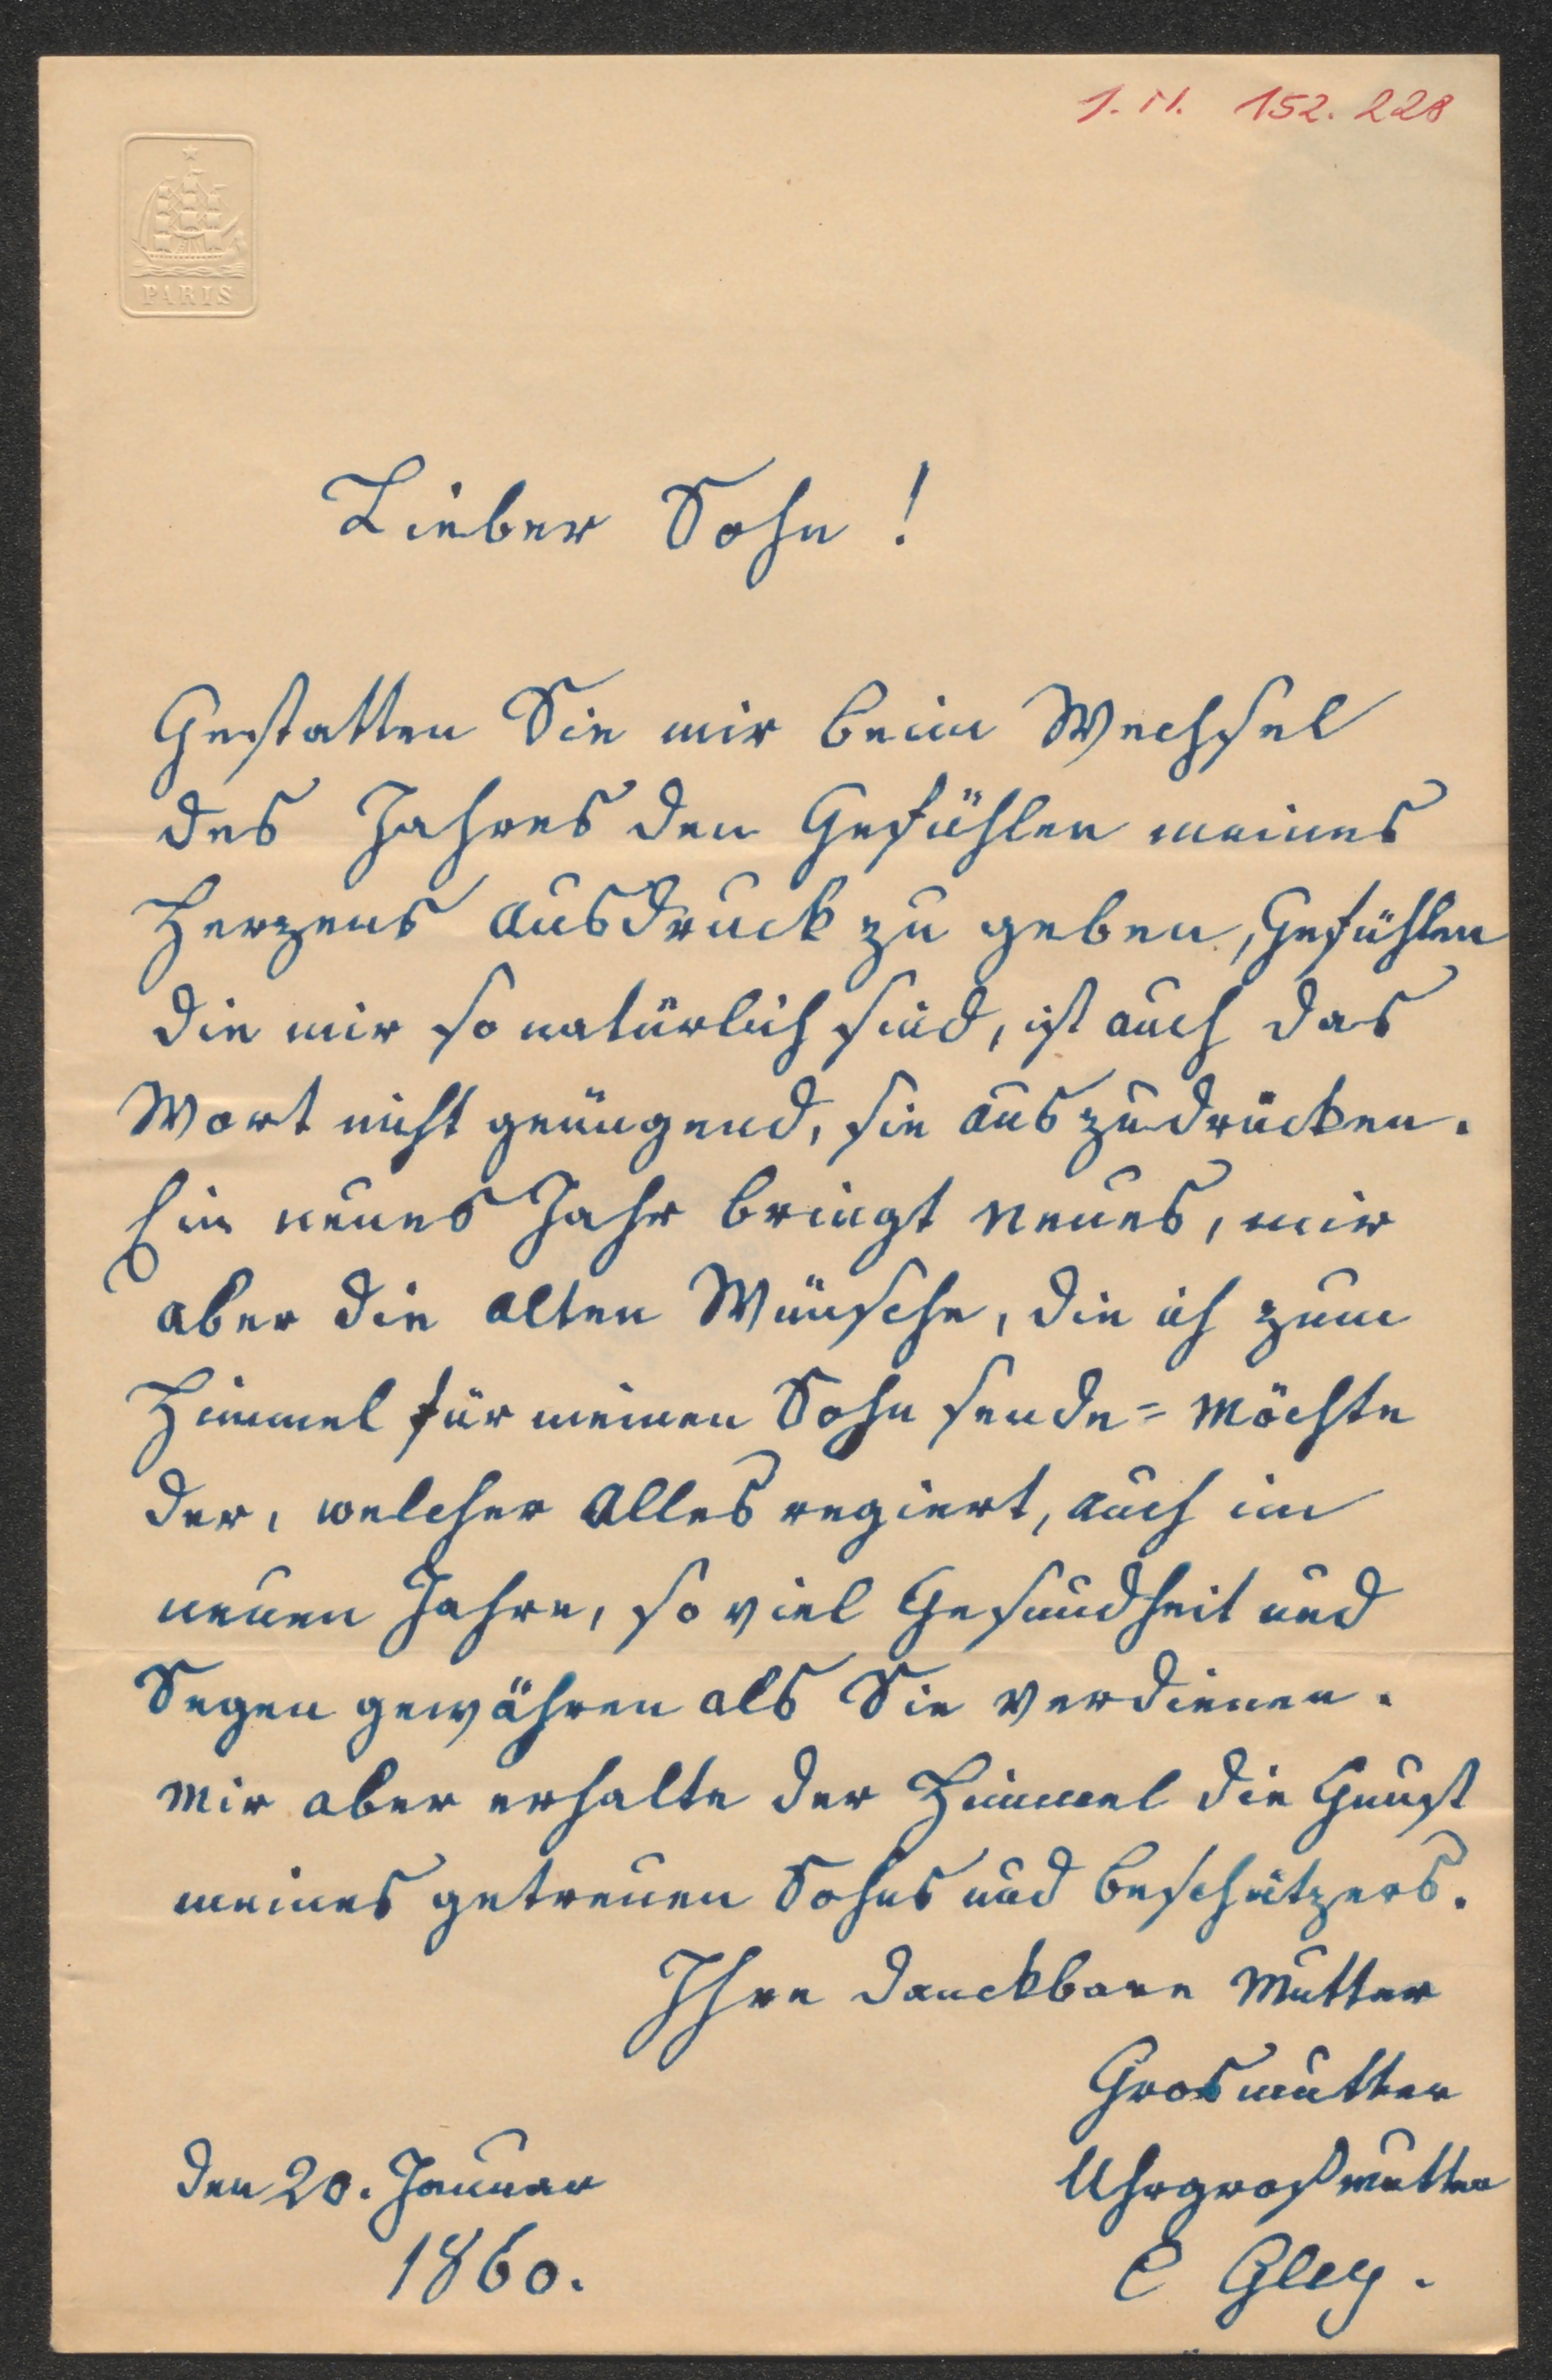 J. N. 152.228
PARIS
Lieber Sohn !
Gestatten Sie mir beim Wechsel
des Jahres den Gefühlen meines
Herzens Ausdruck zu geben, Gefühlen
die mir so natürlich sind, ist auch das
Wort nicht genügend, sie auszudrücken.
Ein neues Jahr bringt neues, mir
aber die alten Wünsche, die ich zum
Himmel für meinen Sohn sende = möchte
der, welcher Alles regiert, auch im
neuen Jahre, so viel Gesundheit und
Segen gewähren als Sie verdienen.
Mir aber erhalte der Himmel die Gunst
meines getreuen Sohns und Beschützers.
Ihre danckbare Mutter
Grosmutter
Uhrgroßmutter
den 20. Januar
1860.
E Gley.